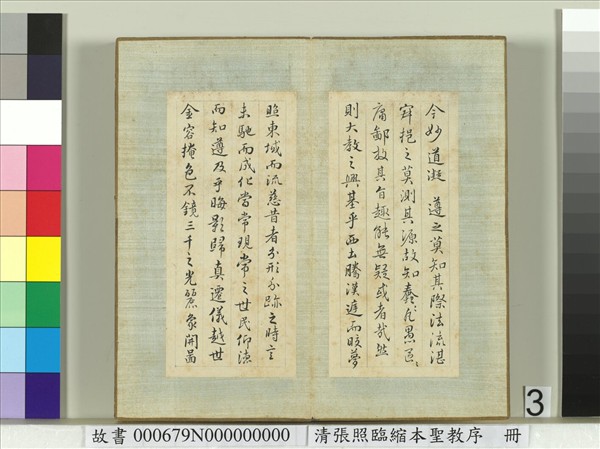 今妙道凝 遵之莫知其際法流湛
寂挹之莫測其源故知蠢〻凡愚區〻
庸鄙投其旨趣能無疑或者哉然
則大教之興基乎西土騰漢庭而皎夢
照東域而流慈昔者分形分跡之時言
未馳而成化當常現常之世民仰德
而知遵及乎晦影歸真遷儀越世
金容掩色不鏡三千之光麗象開啚
3
故書 000679N000000000 清張照臨縮本聖教序 冊